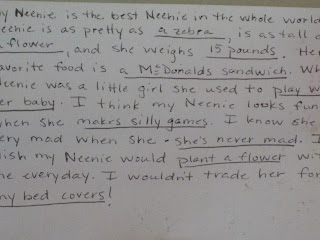 y Neenie is the best Neenie in the whole world
eenie is as pretty as a zebra, is as tall a
flower, and she weighs 15 pounds. He
avorite food is a McDonalds sandwich. Wh
Neenie was a little girl she used to play w
er baby. I think my Neenie looks fun
when she makes silly games. I know she
ery mad when she - she's never mad. I
ish my Neenie would plant a flower wi
me everyday. I wouldn't trade her for
my bed covers!